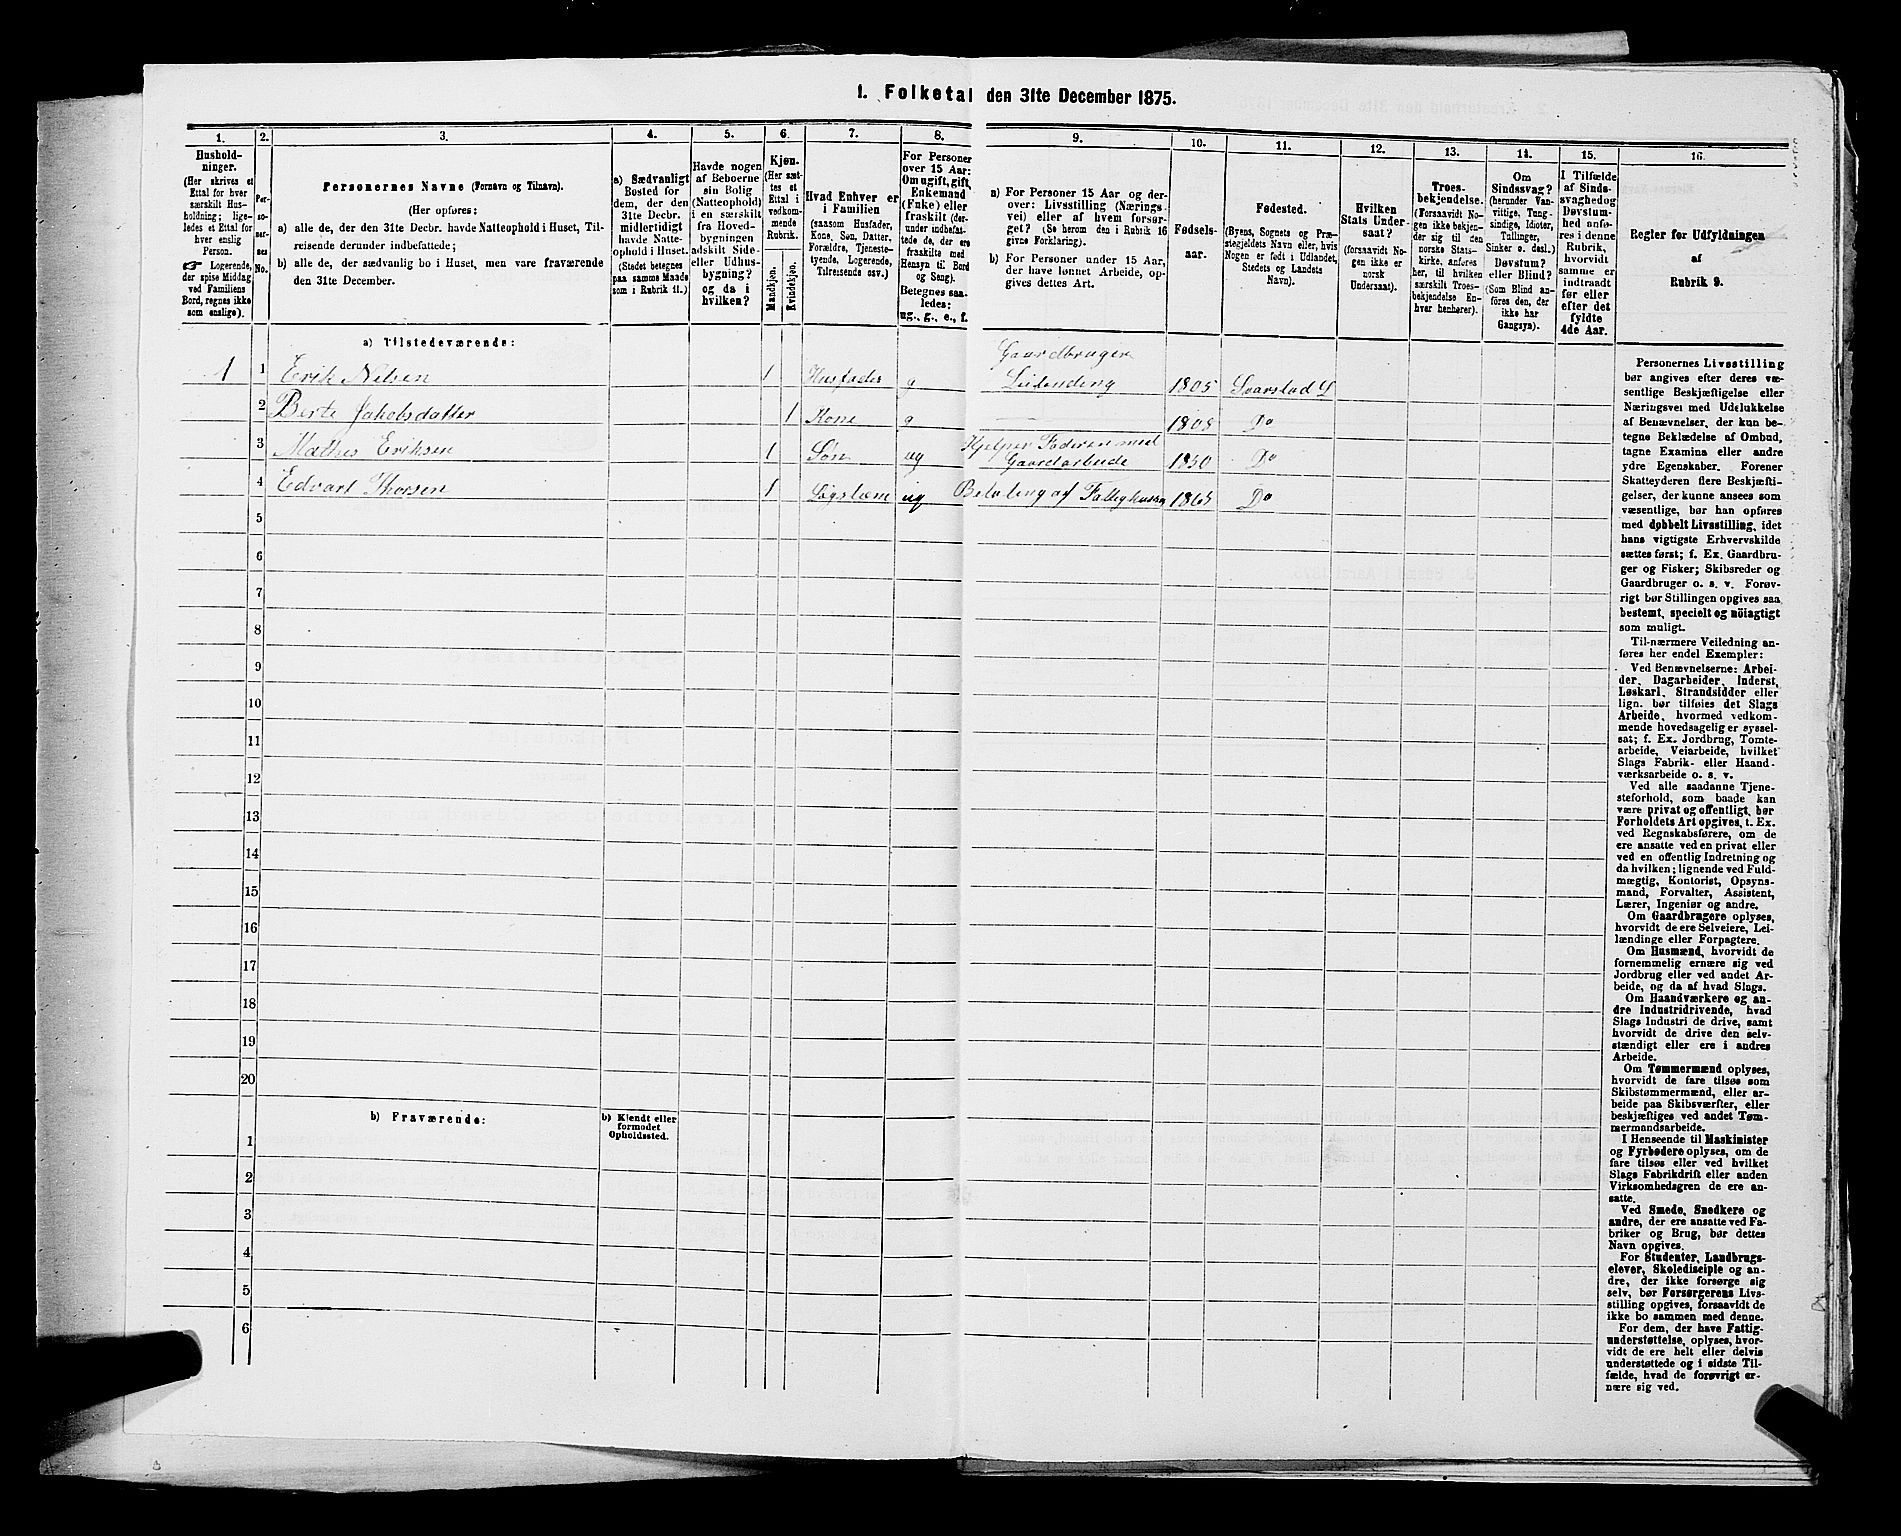 1. Folketal den 31te December 1875.
1.
Husholdninger.
(Her skrives et
Ettal for hver
særskilt Husholdning; ligeledes et Ettal for
hver enslig
Person.
☞ Logerende,
der spise Middag
ved Familiens
Bord, regnes ikke
som enslige).
2.
Personernes
No.
3.
Personernes Navne (Fornavn og Tilnavn).
(Her opføres:
a) alle de, der den 31te Decbr. havde Natteophold i Huset, Tilreisende derunder indbefattede;
b) alle de, der sædvanlig bo i Huset, men vare fraværende
den 31te December.
4.
a) Sædvanligt
Bosted for
dem, der den
31te Decbr.
midlertidigt
havde Natteophold i Huset.
(Stedet betegnes
paa samme Maade
som i Rubrik 11.)
5.
Havde nogen
af Beboerne
sin Bolig
(Natteophold)
i en særskilt
fra Hovedbygningen
adskilt Side-
eller Udhusbygning?
og da i
hvilken?
6
Kjøn.
(Her sættes et
Ettal i
vedkommende
Rubrik.
Mandkjøn.
Kvindekjøn.
7.
Hvad Enhver er
i Familien
(saasom Husfader,
Kone, Søn, Datter,
Forældre, Tjenestetyende, Logerende,
Tilreisende osv.)
8.
For Personer
over 15 Aar:
Om ugift, gift,
Enkemand
(Enke) eller
fraskilt (derunder indbefattede de, der ere
fraskilte med
Hensyn til Bord
og Seng).
Betegnes saaledes:
ug., g., e., f.
9.
a) For Personer 15 Aar og derover: Livsstilling (Næringsvei) eller af hvem forsørget? (Se herom den i Rubrik 16
givne Forklaring).
b) For Personer under 15 Aar,
der have lønnet Arbeide, opgives dettes Art.
10.
Fødselsaar.
11.
Fødested.
(Byens, Sognets og Præstegjeldets Navn eller, hvis
Nogen er født i Udlandet,
Stedets og Landets
Navn).
12.
Hvilken
Stats Undersaat?
(forsaavidt Nogen ikke er
norsk
Undersaat).
13.
Troesbekjendelse.
(Forsaavidt Nogen ikke bekjender sig til den
norske Statskirke, anføres
her, til hvilken
særskilt Troesbekjendelse Enhver henhører).
14.
Om
Sindssvag?
(herunder Vanvittige, Tungsindige, Idioter,
Tullinger,
Sinker o. desl.)
Døvstum?
eller Blind?
(Som Blind anføres den, der
ikke har
Gangsyn).
15.
I Tilfælde
af Sindssvaghed og
Døvstumhed anføres i denne
Rubrik,
hvorvidt
samme er
indtraadt
før eller
efter det
fyldte
4de Aar.
16.
Regler for Udfyldningen
af
Rubrik 9.
a) Tilstedeværende:
1 1 Erik Nilsen 1 Husfader g Gaardbruger
Leilending 1805 Svarstad S
2 Berte Jakobsdatter 1 Kone g — 1808 Do
3 Mathis Eriksen 1 Søn ug Hjelper Faderen med
Gaardarbeide 1850 Do
4 Edvart Thorsen 1 ug Betaling af 1865 Do
5
6
7
8
9
10
11
12
13
14
15
16
17
18
19
20
b) Fraværende:
b) Kjendt eller
formodet
Opholdssted.
1
2
3
4
5
6
Personernes Livsstilling
bør angives efter deres væsentlige Beskjæftigelse eller
Næringsvei med Udelukkelse
af Benævnelser, der kun betegne Beklædelse af Ombud,
tagne Examina eller andre
ydre Egenskaber. Forener
Skatteyderen flere Beskjæftigelser, der kunne ansees som
væsentlige, bør han opføres
med dobbelt Livsstilling, idet
hans vigtigste Erhvervskilde
sættes først; f. Ex. Gaardbruger og Fisker; Skibsreder og
Gaardbruger o. s. v. Forøvrigt bør Stillingen opgives saa
bestemt, specielt og nöiagtigt
som muligt.
Til nærmere Veiledning anføres her endel Exempler:
Ved Benævnelserne: Arbeider, Dagarbeider, Inderst,
Løskarl, Strandsidder eller
lign. bør tilføies det Slags
Arbeide, hvormed vedkommende hovedsagelig er sysselsat; f. Ex. Jordbrug, Tomtearbeide, Veiarbeide, hvilket
Slags Fabrik- eller Haandværksarbeide o. s. v.
Ved alle saadanne Tjenesteforhold, som baade kan
være privat og offentligt, bør
Forholdets Art opgives, t. Ex.
ved Regnskabsførere, om de
ere ansatte ved en privat eller
ved en offentlig Indretning og
da hvilken; lignende ved Fuldmægtig, Kontorist, Opsynsmand, Forvalter, Assistent,
Lærer, Ingeniør og andre.
Om Gaardbrugere oplyses,
hvorvidt de ere Selveiere, Leilændinge eller Forpagtere.
Om Husmænd, hvorvidt de
fornemmelig ernære sig ved
Jordbrug eller ved andet Arbeide, og da af hvad Slags.
Om Haandværkere og andre Industridrivende, hvad
Slags Industri de drive, samt
hvorvidt de drive den selvstændigt eller ere i andres
Arbeide.
Om Tømmermænd oplyses,
hvorvidt de fare tilsøs som
Skibstømmermænd, eller arbeide paa Skibsværfter, eller
beskjæftiges ved andet Tømmermandsarbeide.
I Henseende til Maskinister
og Fyrbødere oplyses, om de
fare tilsøs eller ved hvilket
Slags Fabrikdrift eller anden
Virksomhedsgren de ere ansatte.
Ved Smede, Snedkere og
andre, der ere ansatte ved Fabriker og Brug, bør dettes
Navn opgives.
For Studenter, Landbrugselever, Skoledisciple og andre, der ikke forsørge sig
selv, bør Forsørgerens Livsstilling opgives, forsaavidt de
ikke bo sammen med denne.
For dem, der have Fattigunderstøttelse, oplyses, hvorvidt de ere helt eller delvis
understøttede og i sidste Tilfælde, hvad de forøvrigt ernære sig ved.